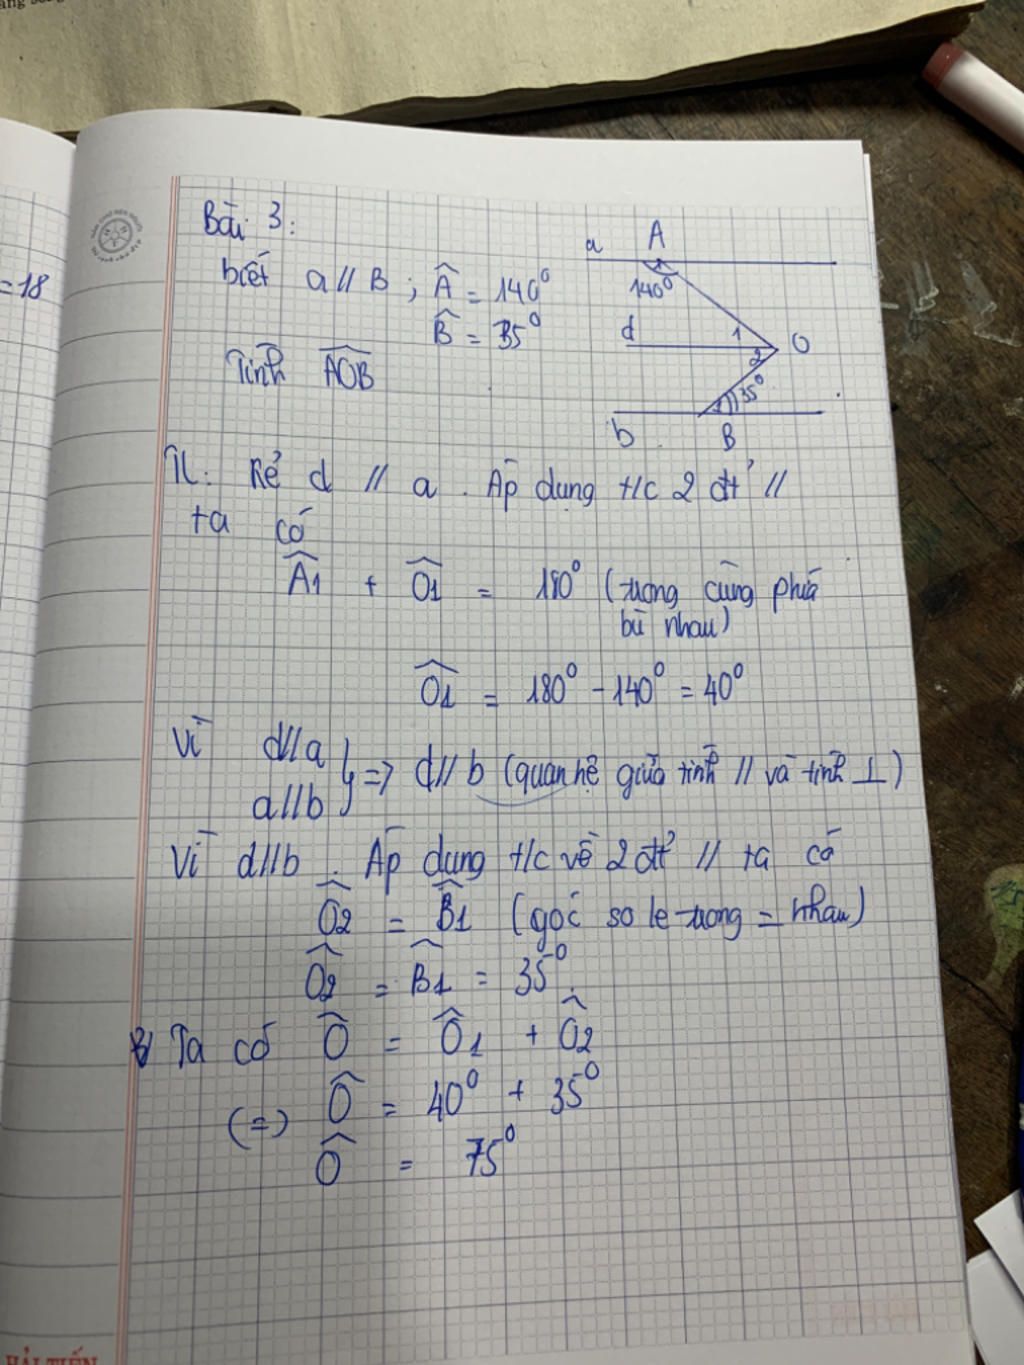 = 18
Bài 3:
biết a // B ; Â = 140⁰
B̂ = 35⁰
Tính AOB
a A
140⁰
d 1 O
2
1 35⁰
b B
Kẻ d // a . Áp dụng t/c 2 đt' //
ta có
A1 + O1 = 180⁰ (trong cùng phía
bù nhau)
O1 = 180⁰ - 140⁰ = 40⁰
Vì d//a
a//b } => d// b (quan hệ giữa tính // và tính ⊥)
Vì d//b . Áp dụng t/c về 2 đt' // ta có
O2 = B1 (góc so le trong = nhau)
O2 = B1 = 35⁰.
Ta có Ô = Ô1 + Ô2
(=) Ô = 40⁰ + 35⁰
Ô = 75⁰
HẢI TIẾN